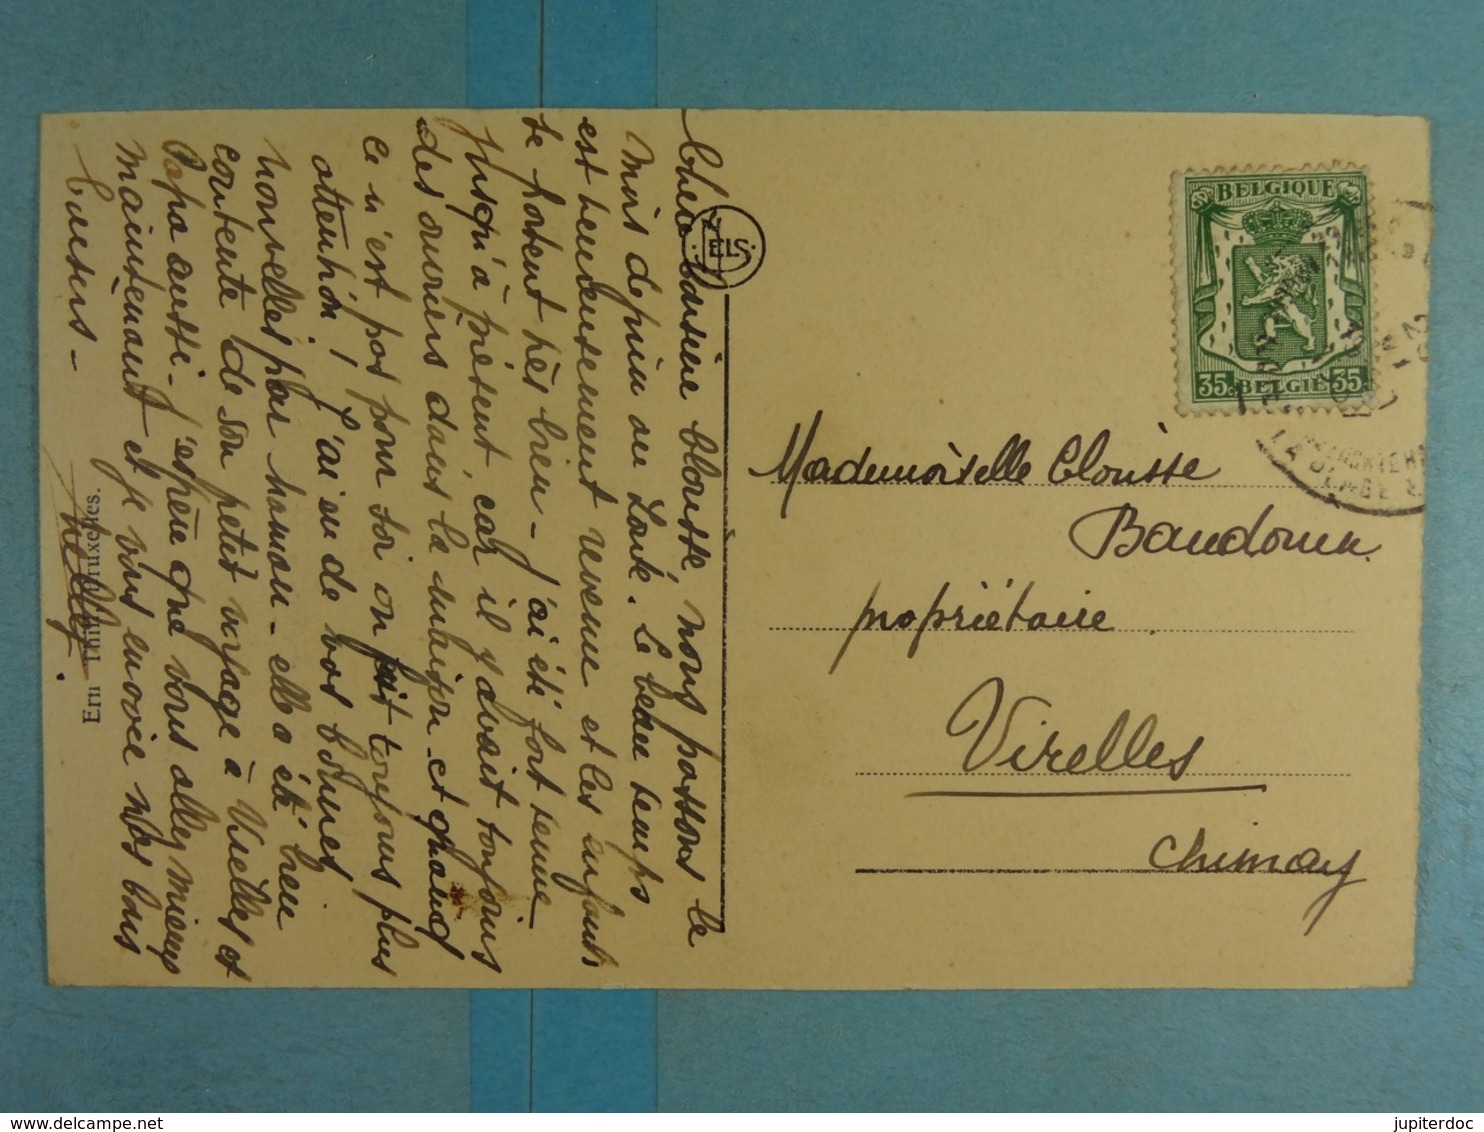 Chère Cousine Clorisse, nous passons le
mois de juin au Zoute. Le beau temps
est heureusement revenu et les enfants
se portent très bien - J'ai été fort tenue
jusqu'à présent car il y avait toujours
des ouvriers dans la maison et quand
ce n'est pas pour soi on fait toujours plus
attention! J'ai eu de vos bonnes
nouvelles par maman - elle a été bien
contente de son petit voyage à Virelles et
Papa aussi - J'espère que vous allez mieux
maintenant et je vous envoie nos bons
baisers -
Nelly
Ern Thill, Bruxelles.
NELS
BELGIQUE
35 BELGIË 35
Mademoiselle Clorisse
Baudouin
propriétaire
Virelles
Chimay
jupiterdoc